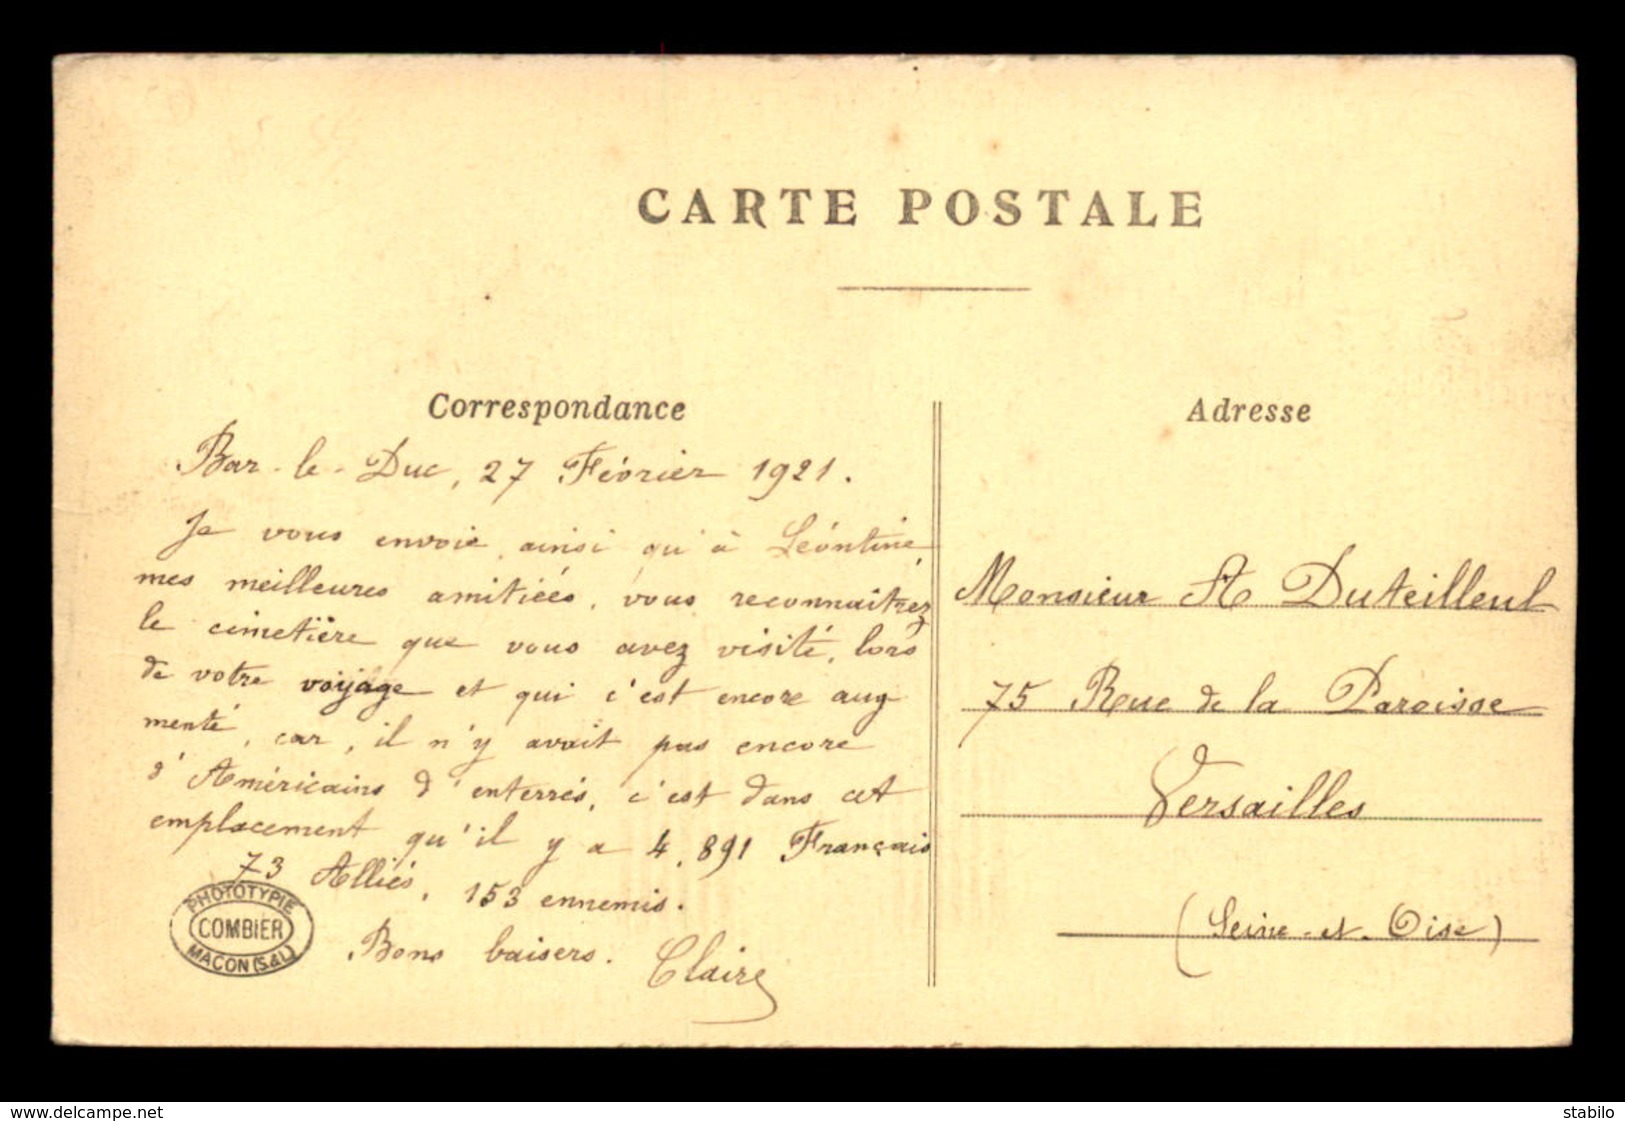 CARTE POSTALE
Correspondance
Bar-le-Duc, 27 Février 1921.
Je vous envoie, ainsi qu'à Léontine,
mes meilleures amitiées, vous reconnaitrez
le cimetière que vous avez visité, lors
de votre voyage et qui c'est encore aug
menté, car, il n'y avait pas encore
d'Américains d'enterrés, c'est dans cet
emplacement qu'il y a 4.891 Français
73 Alliés, 153 ennemis.
Bons baisers. Claire
PHOTOTYPIE
COMBIER
MACON (S&L)
Adresse
Monsieur A Duteilleul
75 Rue de la Paroisse
Versailles
(Seine-et-Oise)
www.delcampe.net
stabilo